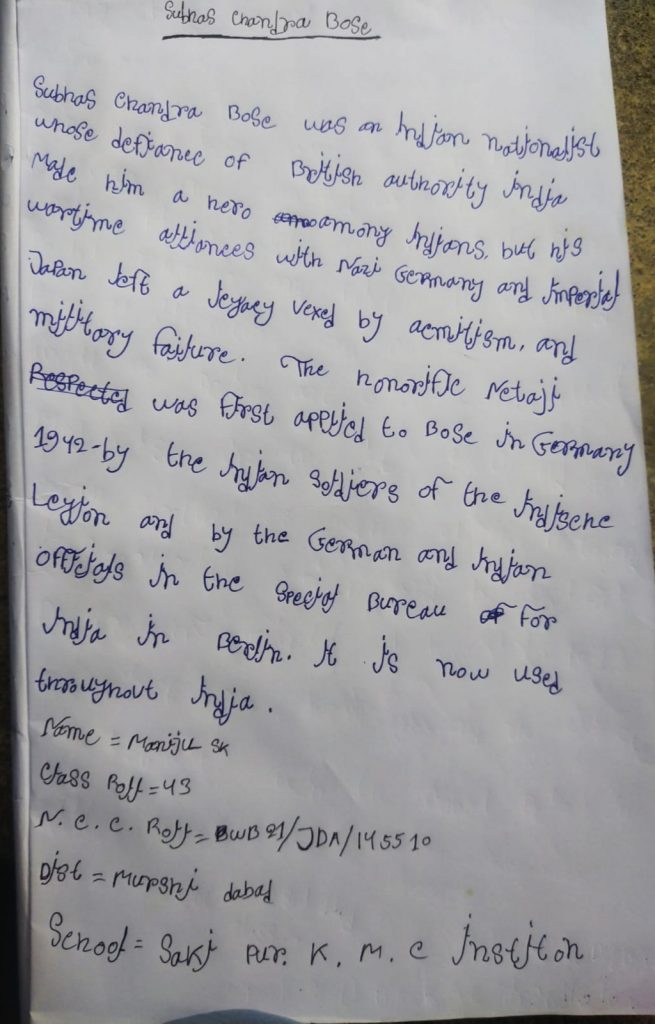 Subhas Chandra Bose
Subhas Chandra Bose was an Indian nationalist
whose defiance of British authority india
Made him a hero among Indians, but his
wartime alliances with Nazi Germany and Imperial
Japan left a legacy vexed by and
military failure. The honorific Netaji
Respected was first applied to Bose in Germany
1942-by the Indian Soldiers of the Indische
Legion and by the German and Indian
officials in the Special Bureau of For
India in Berlin. It is now used
throughout India.
Name = Manijul SK
Class Roll = 43
N. C. C. Roll = WB21/JDA/145510
Dist = Murshi dabad
School = Saki Pur. K. M. C instition